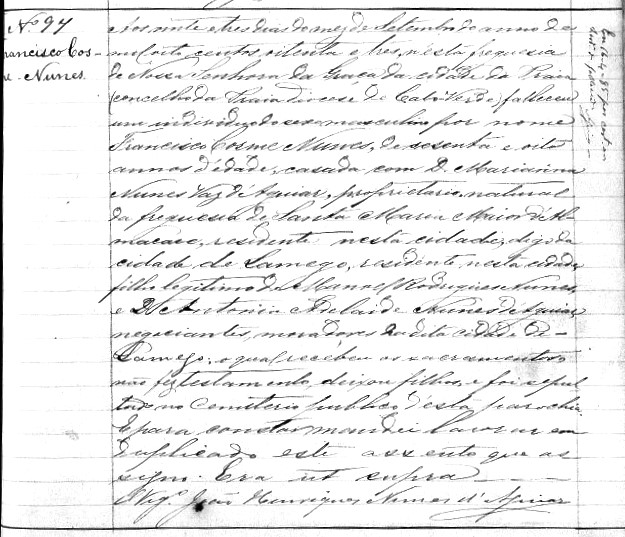 Nº 94
Francisco Cos-
me Nunes
Aos vinte e tres dias do mez de Setembro do anno de
mil oito centos oitenta e tres, nesta freguesia
de Nossa Senhora da Graça da cidade da Praia
(concelho da Praia diocese de Cabo Verde) falleceu
um individuo do sexo masculino por nome
Francisco Cosme Nunes, de sessenta e oito
annos d'edade, casado com D. Marianna
Nunes Vaz d'Aguiar, proprietario, natural
da freguesia de Santa Maria Maior de Al-
macave, residente nesta cidade, digo da
cidade de Lamego, residente nesta cidade,
filho legitimo de Manoel Rodrigues Nunes,
e D. Antonia Adelaide Nunes d'Aguiar,
negociantes, moradores na dita cidade de
Lamego, o qual recebeu os sacramentos
não fez testamento, deixou filhos, e foi sepul
tado no cemiterio publico d'esta parochia
E para constar mandei lavrar em
duplicado este assento que as
signo. Era ut supra
Vigº João Henriques Nunes d'Aguiar